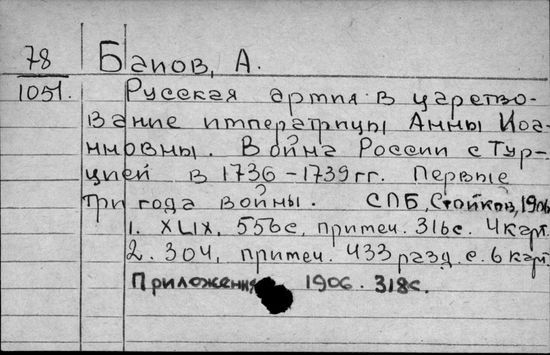 78 Баиов, А.
1051. Русская армия в царство-
вание императрицы Анны Иоа-
нновны. Война России с Тур-
цией в 1736-1739 гг. Первые
три года войны. СПБ, Стойков, 1906
1. XLIX, 556 с, примеч. 316 с. 4 карт.
2. 304, примеч. 433 разд. с. 6 карт
Приложения 1906. 318 с.